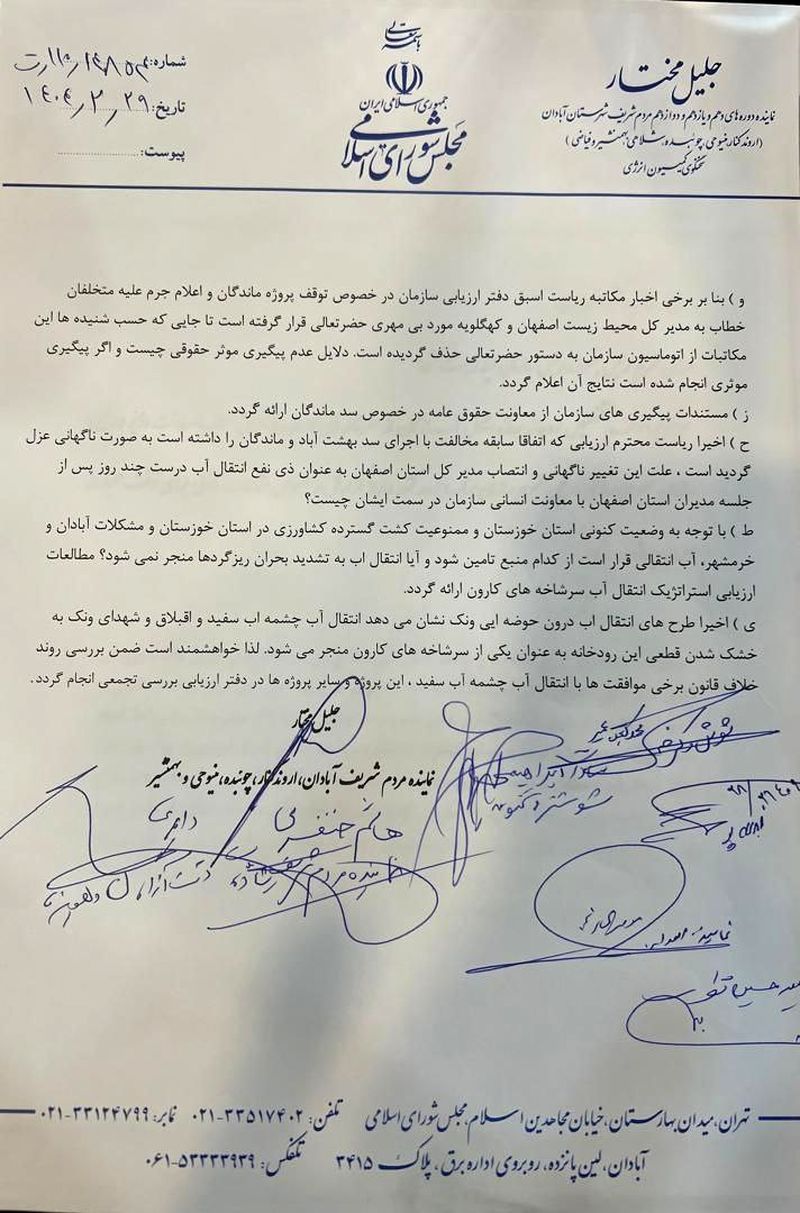 باسمه تعالی
جمهوری اسلامی ایران
مجلس شورای اسلامی
جلیل مختار
نماینده دوره های دهم و یازدهم و دوازدهم مردم شریف شهرستان آبادان
(اروندکنار، منیوحی، چوئبده، شلامی، بهمنشیر و فیاضی)
سخنگوی کمیسیون انرژی
شماره:
تاریخ: ۱۴۰۴/۲/۲۹
پیوست:
و ) بنا بر برخی اخبار مکاتبه ریاست اسبق دفتر ارزیابی سازمان در خصوص توقف پروژه ماندگان و اعلام جرم علیه متخلفان
خطاب به مدیر کل محیط زیست اصفهان و کهگلویه مورد بی مهری حضرتعالی قرار گرفته است تا جایی که حسب شنیده ها این
مکاتبات از اتوماسیون سازمان به دستور حضرتعالی حذف گردیده است. دلایل عدم پیگیری موثر حقوقی چیست و اگر پیگیری
موثری انجام شده است نتایج آن اعلام گردد.
ز ) مستندات پیگیری های سازمان از معاونت حقوق عامه در خصوص سد ماندگان ارائه گردد.
ح ) اخیرا ریاست محترم ارزیابی که اتفاقا سابقه مخالفت با اجرای سد بهشت آباد و ماندگان را داشته است به صورت ناگهانی عزل
گردید است ، علت این تغییر ناگهانی و انتصاب مدیر کل استان اصفهان به عنوان ذی نفع انتقال آب درست چند روز پس از
جلسه مدیران استان اصفهان با معاونت انسانی سازمان در سمت ایشان چیست؟
ط ) با توجه به وضعیت کنونی استان خوزستان و ممنوعیت کشت گسترده کشاورزی در استان خوزستان و مشکلات آبادان و
خرمشهر، آب انتقالی قرار است از کدام منبع تامین شود و آیا انتقال اب به تشدید بحران ریزگردها منجر نمی شود؟ مطالعات
ارزیابی استراتژیک انتقال آب سرشاخه های کارون ارائه گردد.
ی ) اخیرا طرح های انتقال اب درون حوضه ایی ونک نشان می دهد انتقال آب چشمه اب سفید و اقبلاق و شهدای ونک به
خشک شدن قطعی این رودخانه به عنوان یکی از سرشاخه های کارون منجر می شود. لذا خواهشمند است ضمن بررسی روند
خلاف قانون برخی موافقت ها با انتقال آب چشمه آب سفید ، این پروژه و سایر پروژه ها در دفتر ارزیابی بررسی تجمعی انجام گردد.
جلیل مختار
نماینده مردم شریف آبادان، اروندکنار، چوئبده، منیوحی و بهمنشیر
هاشم خنفری
نماینده مردم شریف
دشت آزادگان و هویزه
شوشتر و گتوند
تهران، میدان بهارستان، خیابان مجاهدین اسلام، مجلس شورای اسلامی تلفن: ۳۳۵۱۷۴۰۲-۰۲۱ نمابر: ۳۳۱۲۴۷۹۹-۰۲۱
آبادان، لین پانزده، روبروی اداره برق، پلاک ۳۴۱۵ تلفکس: ۵۳۳۳۳۹۳۹-۰۶۱